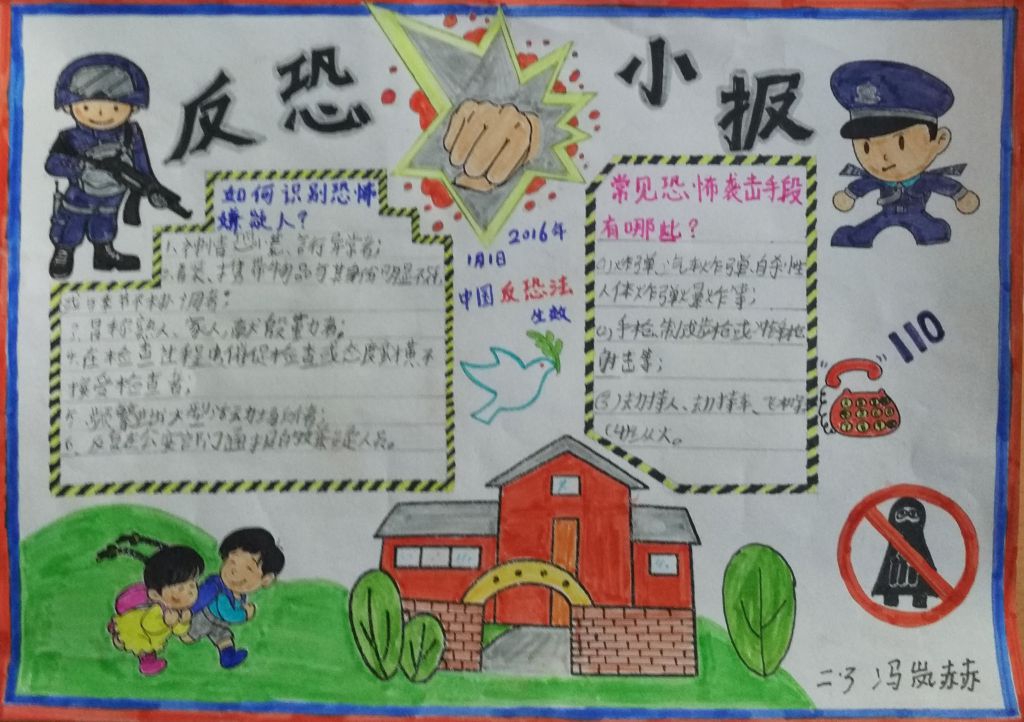 反恐 小报
如何识别恐怖
嫌疑人?
1、神情
2、着装、携带物品与其身份明显不符,
3、冒称熟人、家人、献殷勤者。
4、在检查过程中催促检查或态度蛮横不
接受检查者;
5、频繁进出大型活动场所者;
6、公安部门通报的嫌疑人员。
2016年
1月1日
中国反恐法
生效
常见恐怖袭击手段
有哪些?
(1)炸弹、汽车炸弹、自杀性
人体炸弹爆炸等;
(2)手枪、制式步枪或冲锋枪
射击等;
(3)劫持人、劫持车、飞机等
(4)纵火。
110
二.3 冯岚赫